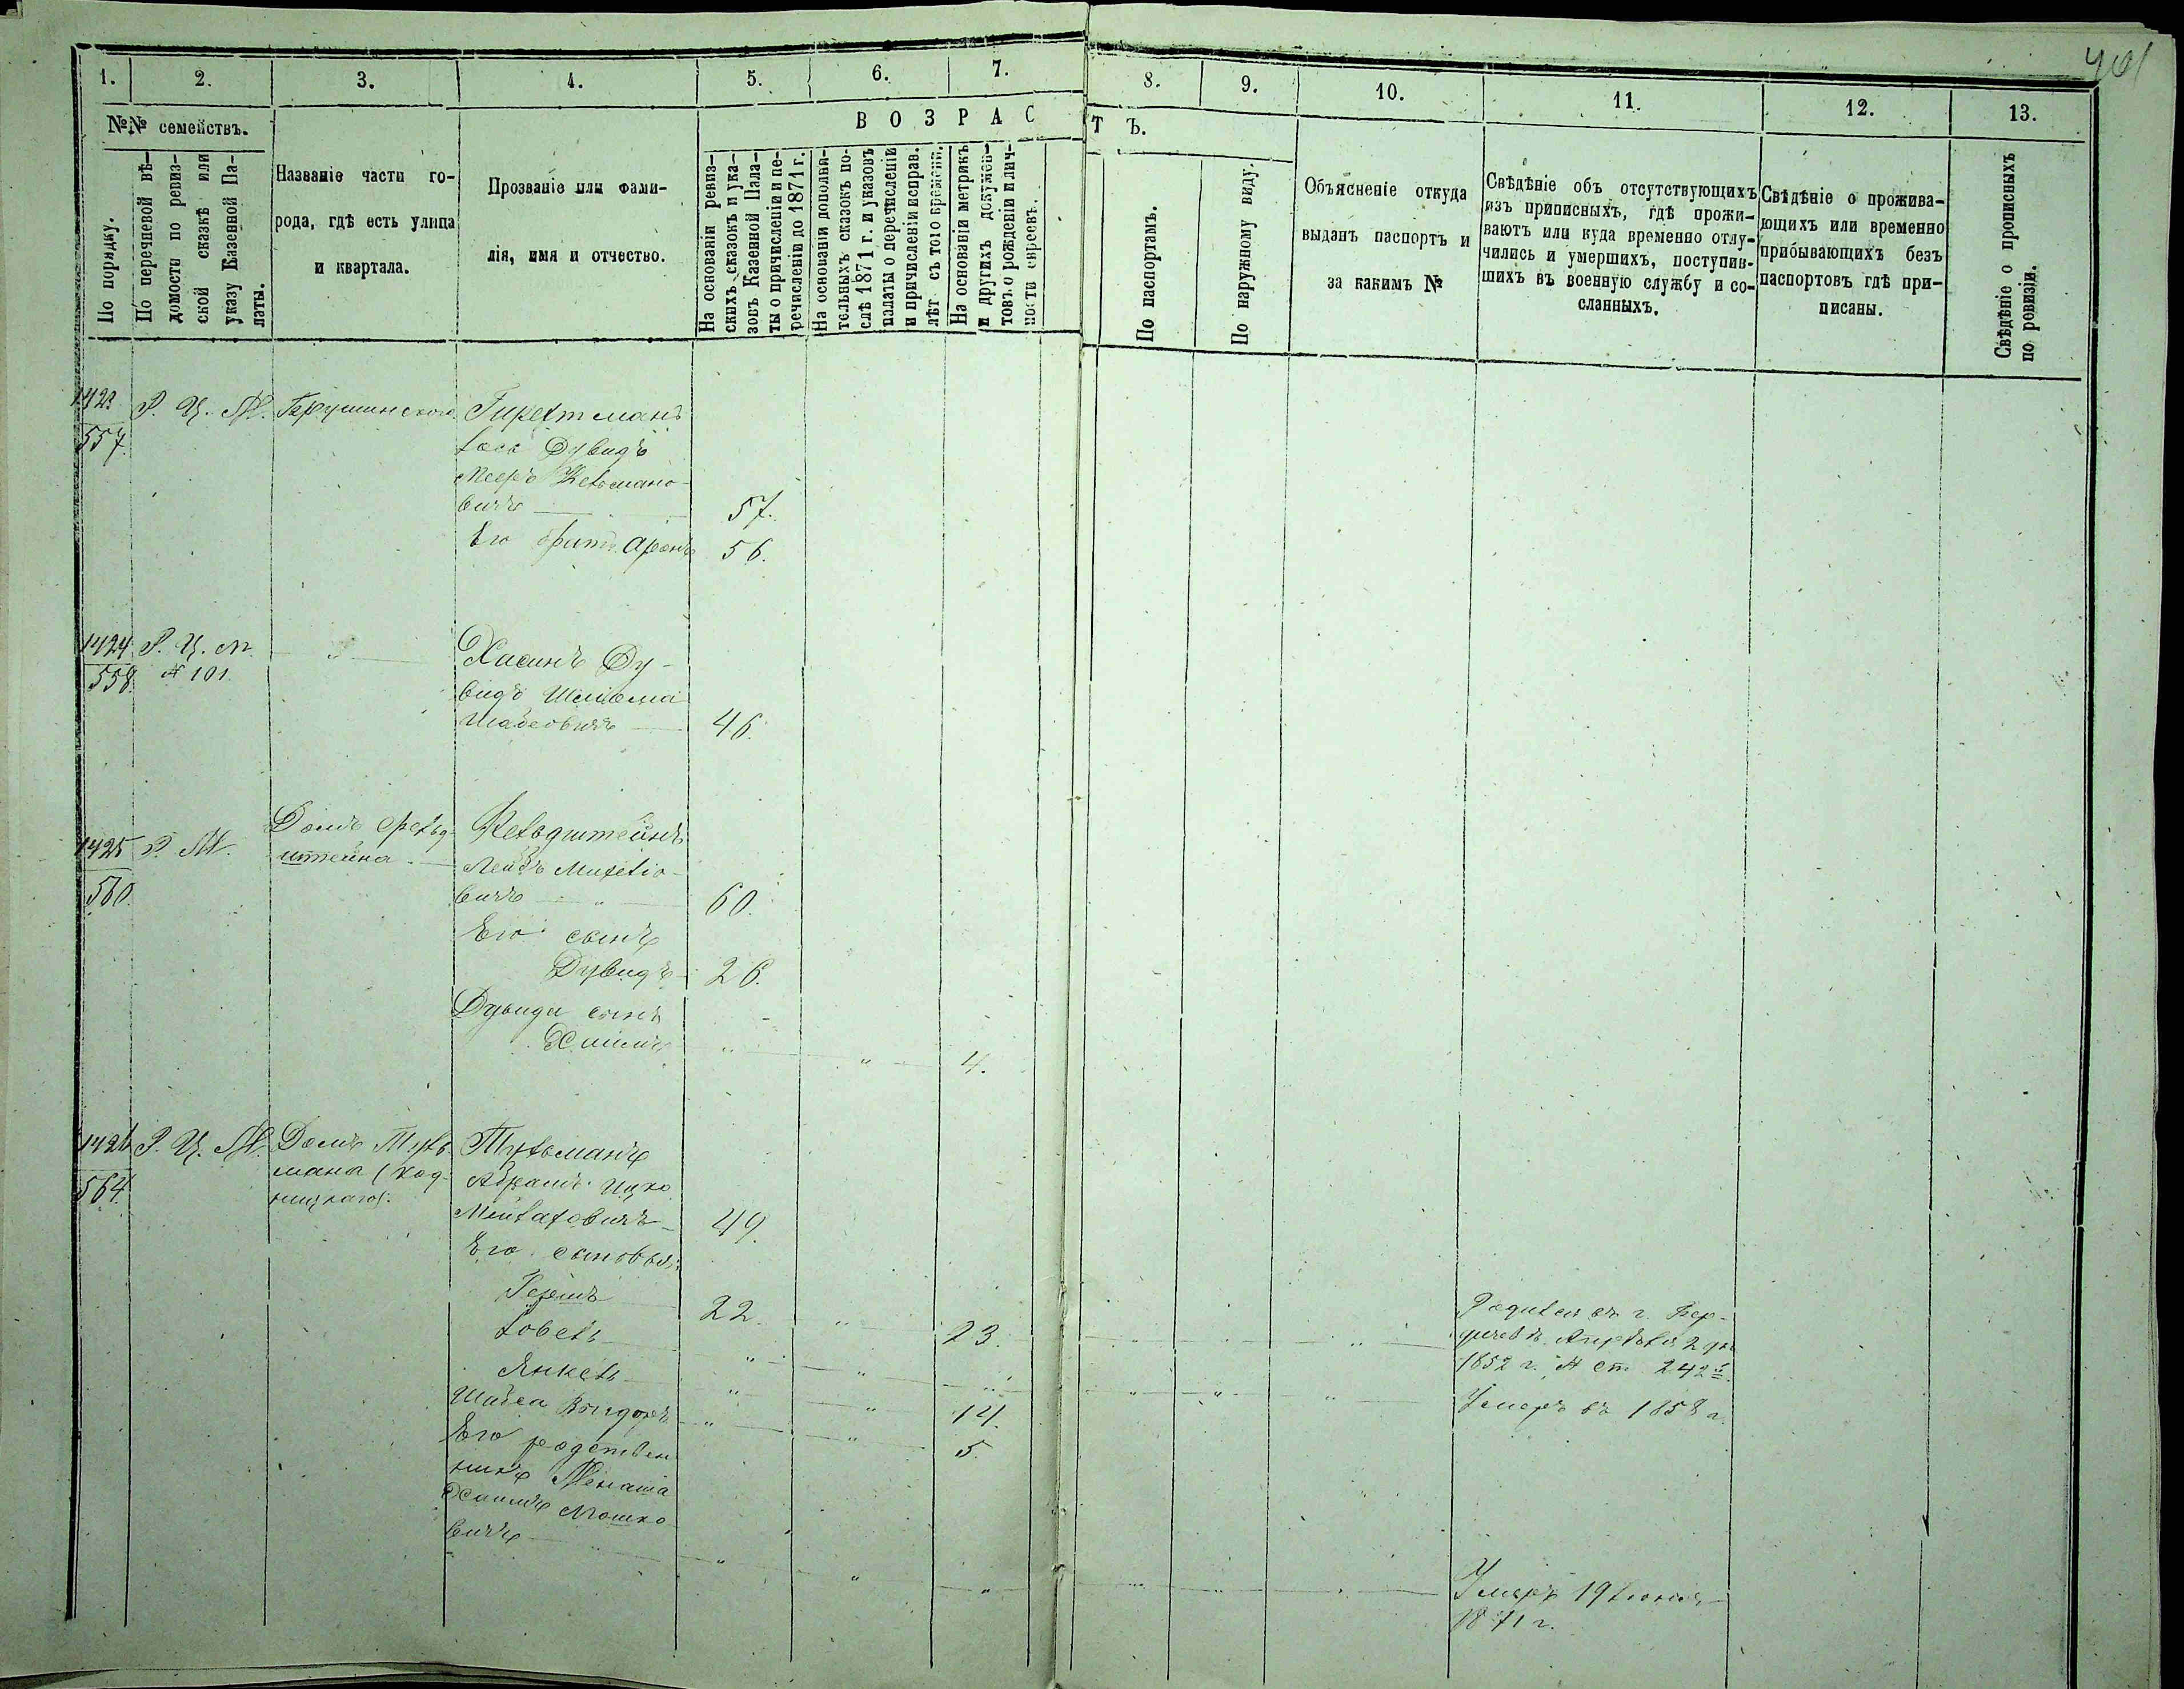 401
1. 2. 3. 4. 5. 6. 7. 8. 9. 10. 11. 12. 13.
№№ семействъ.
По порядку.
По перечневой вѣ-
домости по ревиз-
ской сказкѣ или
указу Казенной Па-
латы.
Названіе части го-
рода, гдѣ есть улица
и квартала.
Прозваніе или фами-
лія, имя и отчество.
ВОЗРАСТЪ.
На основаніи ревиз-
скихъ сказокъ и ука-
зовъ Казенной Пала-
ты о причисленіи и пе-
речисленіи до 1871 г.
На основаніи дополни-
тельныхъ сказокъ по-
слѣ 1871 г. и указовъ
палаты о перечисленіи
и причисленіи исправ.
лѣт съ того времени.
На основаніи метрикъ
и другихъ докумен-
товъ о рожденіи и лич-
ности евреевъ.
По паспортамъ.
По наружному виду.
Объясненіе откуда
выданъ паспортъ и
за какимъ №
Свѣдѣніе объ отсутствующихъ
изъ приписныхъ, гдѣ прожи-
ваютъ или куда временно отлу-
чились и умершихъ, поступив-
шихъ въ военную службу и со-
сланныхъ.
Свѣдѣніе о прожива-
ющихъ или временно
прибывающихъ безъ
паспортовъ гдѣ при-
писаны.
Свѣдѣніе о прописныхъ
по ревизіи.
1423 Р. Ц. М.
557
Дувидъ
Мееръ
вичъ 57.
Его братъ Аронъ 56.
1424 Р. Ц. М. Ду-
558 № 101 видъ Шлиома
46.
Домъ
1425 Р. М. штейна
560 Лейбъ
вичъ 60.
Его сынъ
Дувидъ 26.
Дувида сынъ
Хаимъ " " 4.
1426 Р. Ц. М. Домъ Тульмана Тульманъ
564 Абрамъ Ицко
49.
Его сыновья:
Гершъ 22. " 23. Родился въ г. Бер-
дичевѣ Апрѣля 2 дн
1852 г. № ст. 242
Янкель " " 14
5. Умеръ въ 1858 г.
Его родствен
никъ Менаша
Хаимъ Мошко
вичъ Умеръ 19 Іюня
1871 г.